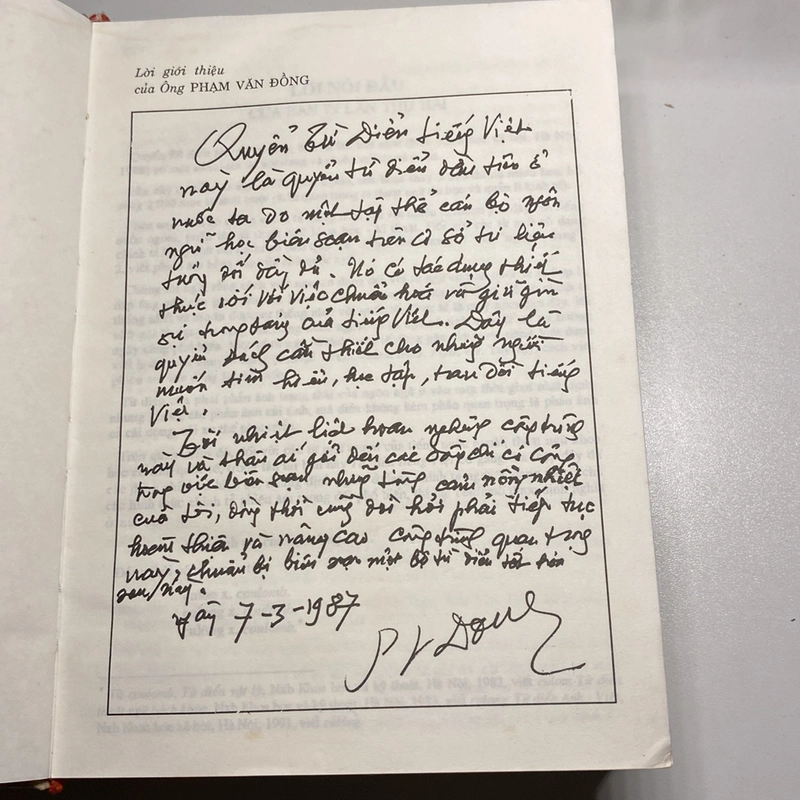 Lời giới thiệu
của Ông PHẠM VĂN ĐỒNG
Quyển Từ Điển tiếng Việt
này là quyển từ điển đầu tiên ở
nước ta do một tập thể cán bộ ngôn
ngữ học biên soạn trên cơ sở tư liệu
tương đối đầy đủ. Nó có tác dụng thiết
thực đối với việc chuẩn hoá và giữ gìn
sự trong sáng của tiếng Việt. Đây là
quyển sách cần thiết cho những người
muốn tìm hiểu, học tập, trau dồi tiếng
Việt.
Tôi nhiệt liệt hoan nghênh công trình
này và thân ái gửi đến các đồng chí có công
trong việc biên soạn những tình cảm nồng nhiệt
của tôi, đồng thời cũng đòi hỏi phải tiếp tục
hoàn thiện và nâng cao công trình quan trọng
này, chuẩn bị biên soạn một bộ từ điển tốt hơn
sau này.
Ngày 7-3-1987
PVDong